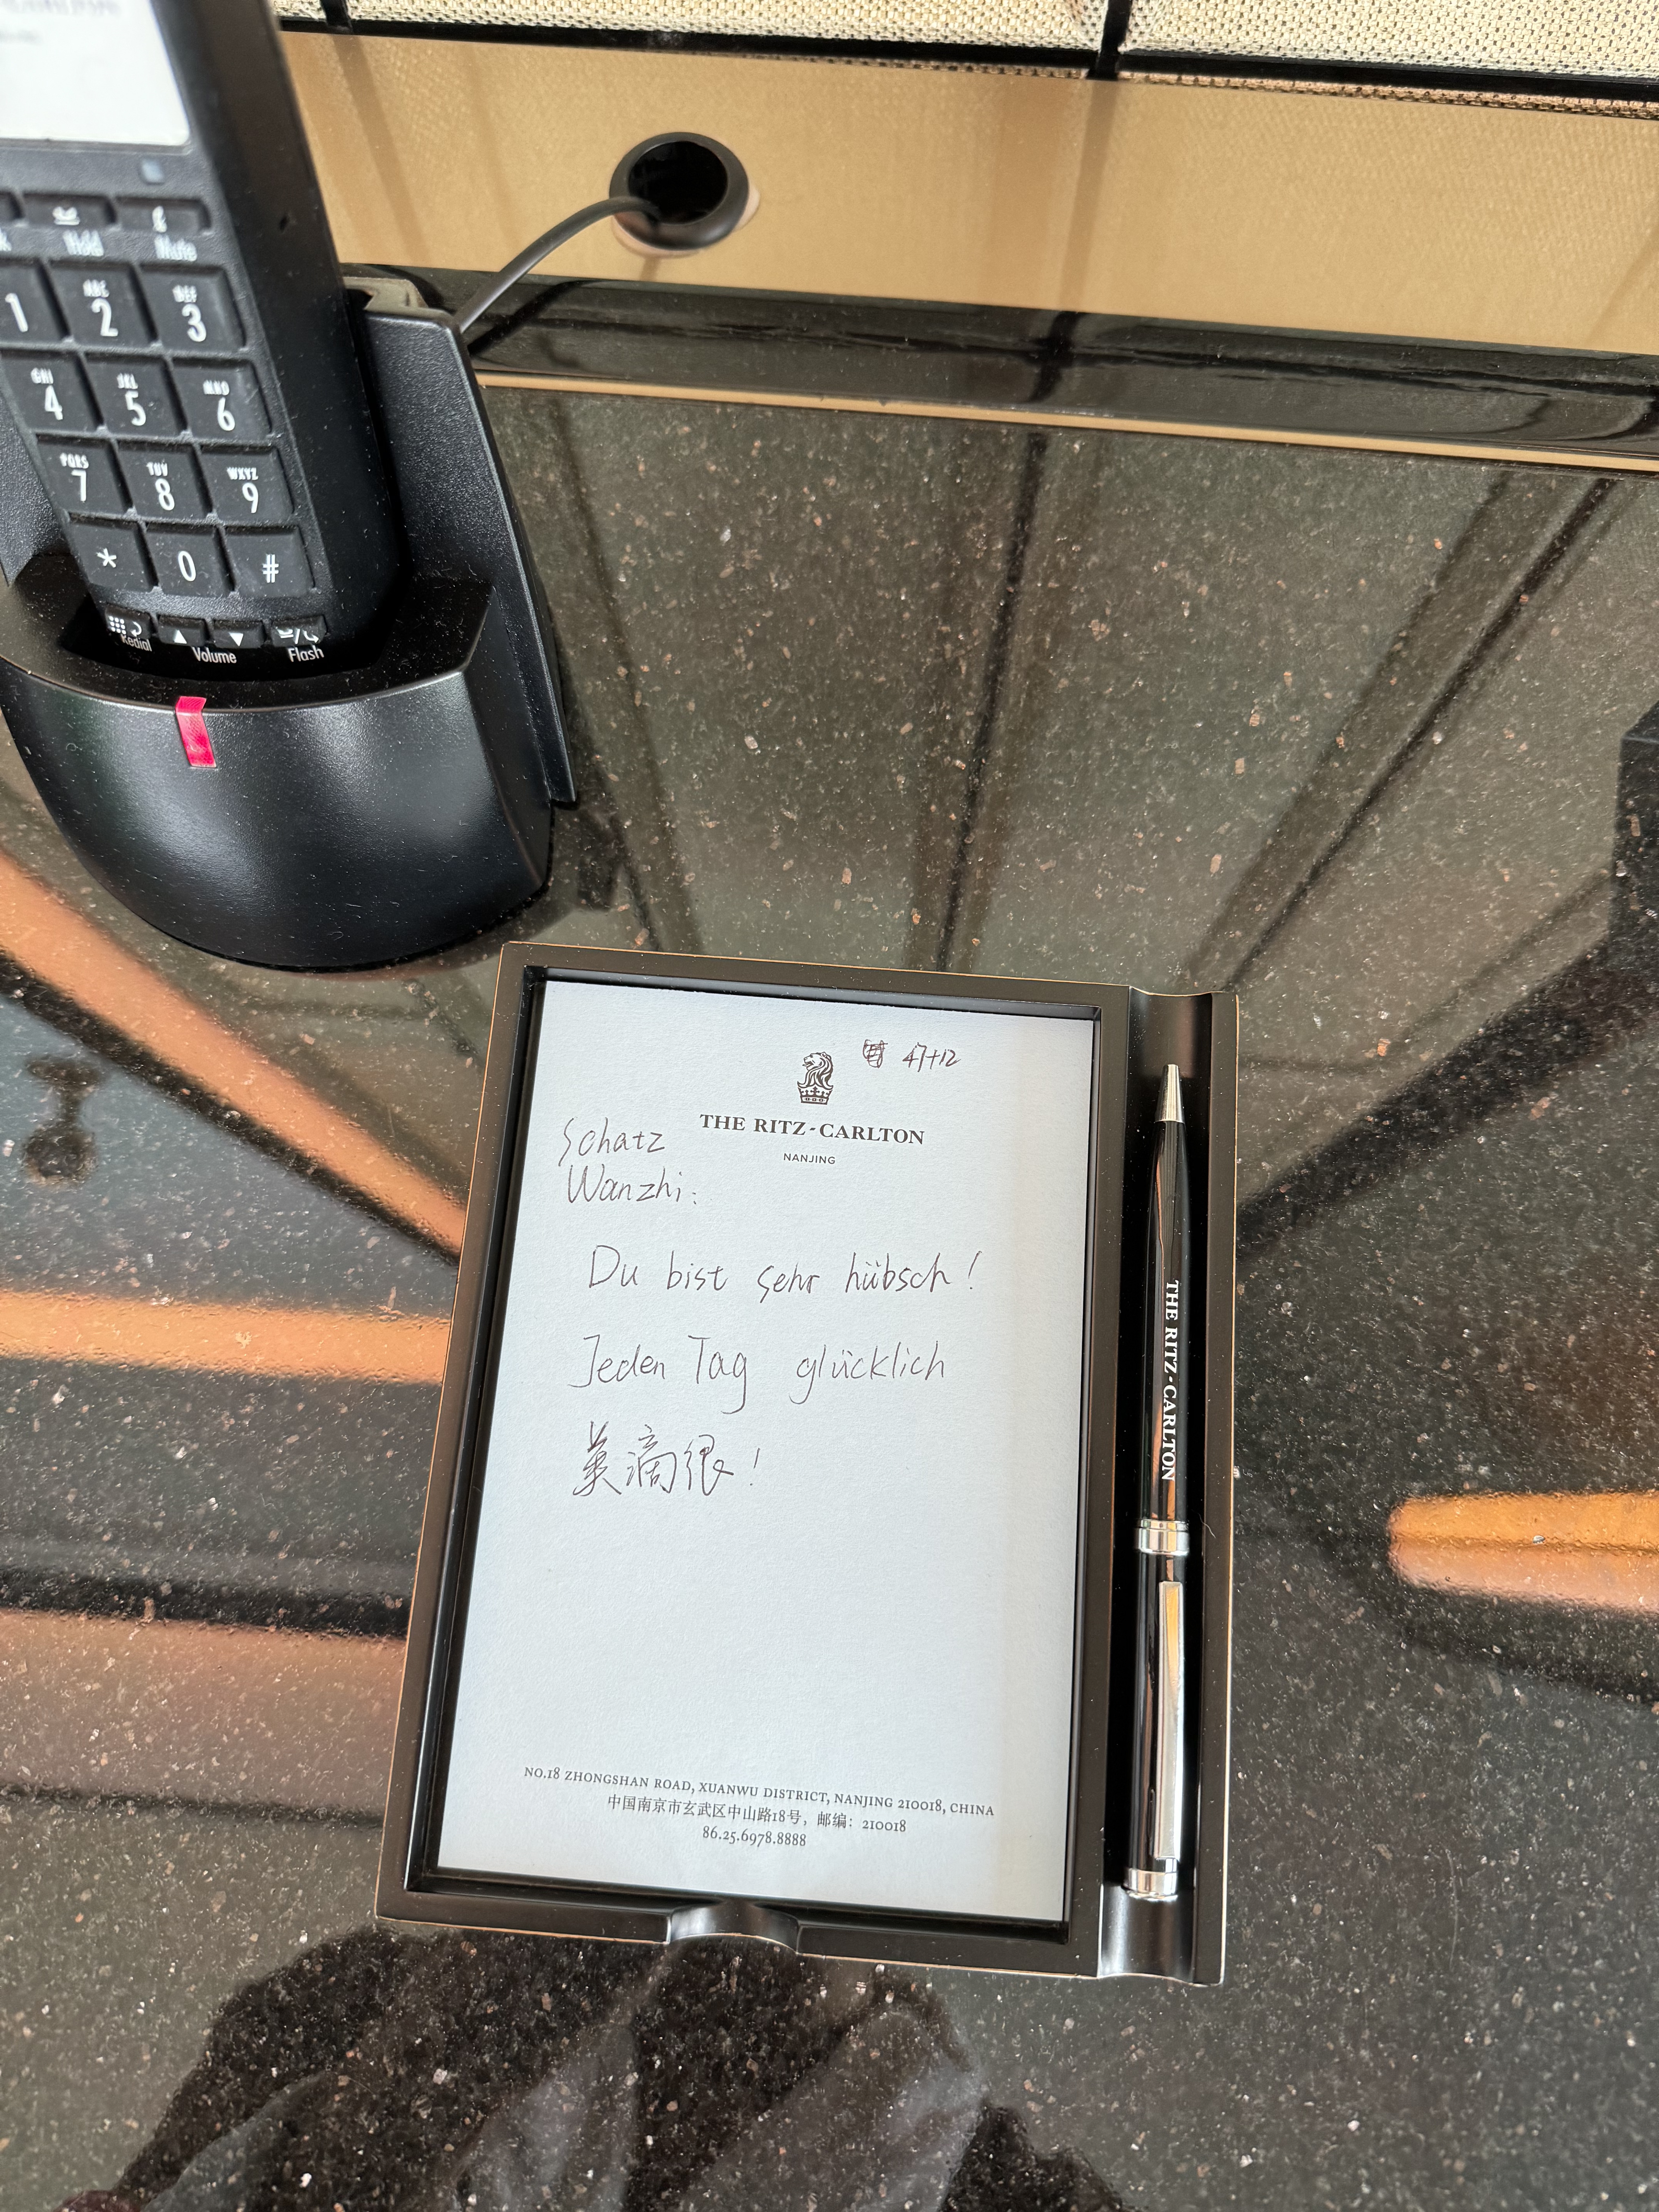 Hold Mute
1 ABC 2 DEF 3
GHI 4 JKL 5 MNO 6
PQRS 7 TUV 8 WXYZ 9
* 0 #
Redial Volume Flash
47+12
THE RITZ-CARLTON
NANJING
Schatz
Wanzhi:
Du bist sehr hübsch!
Jeden Tag glücklich
美滴很!
NO.18 ZHONGSHAN ROAD, XUANWU DISTRICT, NANJING 210018, CHINA
中国南京市玄武区中山路18号，邮编：210018
86.25.6978.8888
THE RITZ-CARLTON